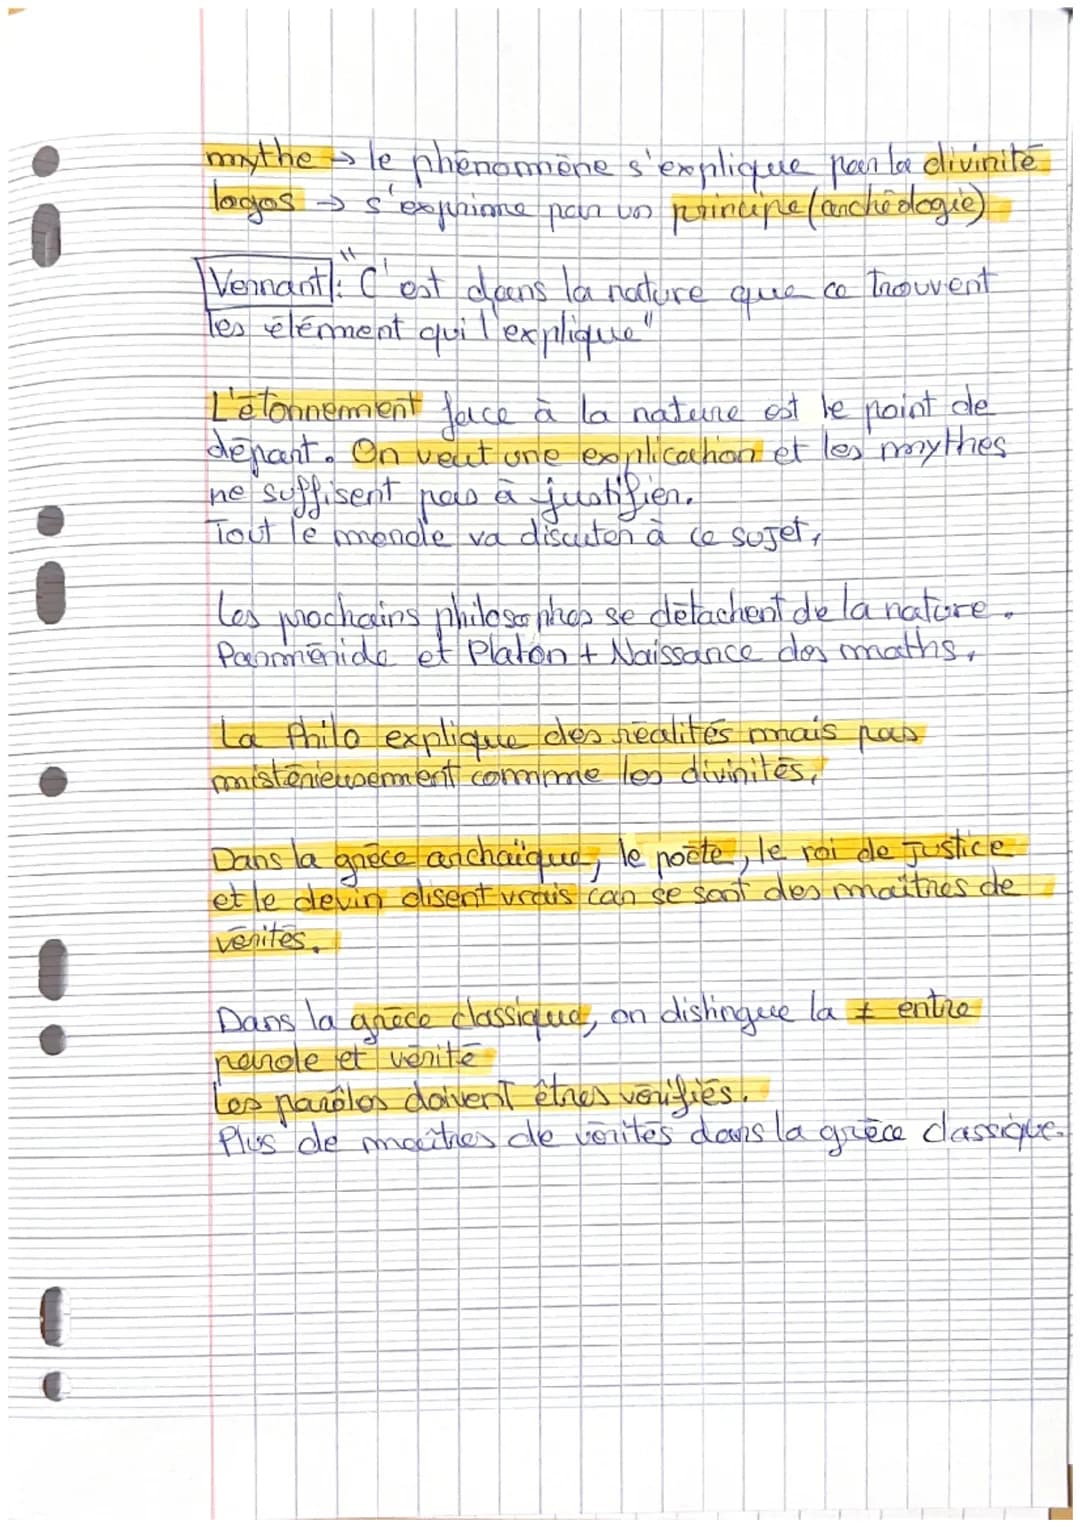 mythe → le phénomène s'explique par la divinité
logos → s'exprime par un principe (archéologie)
Vernant : "C'est dans la nature que ce trouvent
les élément qui l'explique"
L'étonnement face à la nature est le point de
départ. On veut une explication et les mythes
ne suffisent pas à justifier.
Tout le monde va discuter à ce sujet.
Les prochains philosophes se détachent de la nature.
Parménide et Platon + Naissance des maths.
La Philo explique des réalités mais pas
mistérieusement comme les divinités.
Dans la grèce archaïque, le poète, le roi de justice
et le devin disent vrais car se sont des maîtres de
vérités.
Dans la grèce classique, on distingue la ≠ entre
parole et vérité
Les paroles doivent êtres vérifiés.
Plus de maîtres de vérités dans la grèce classique.